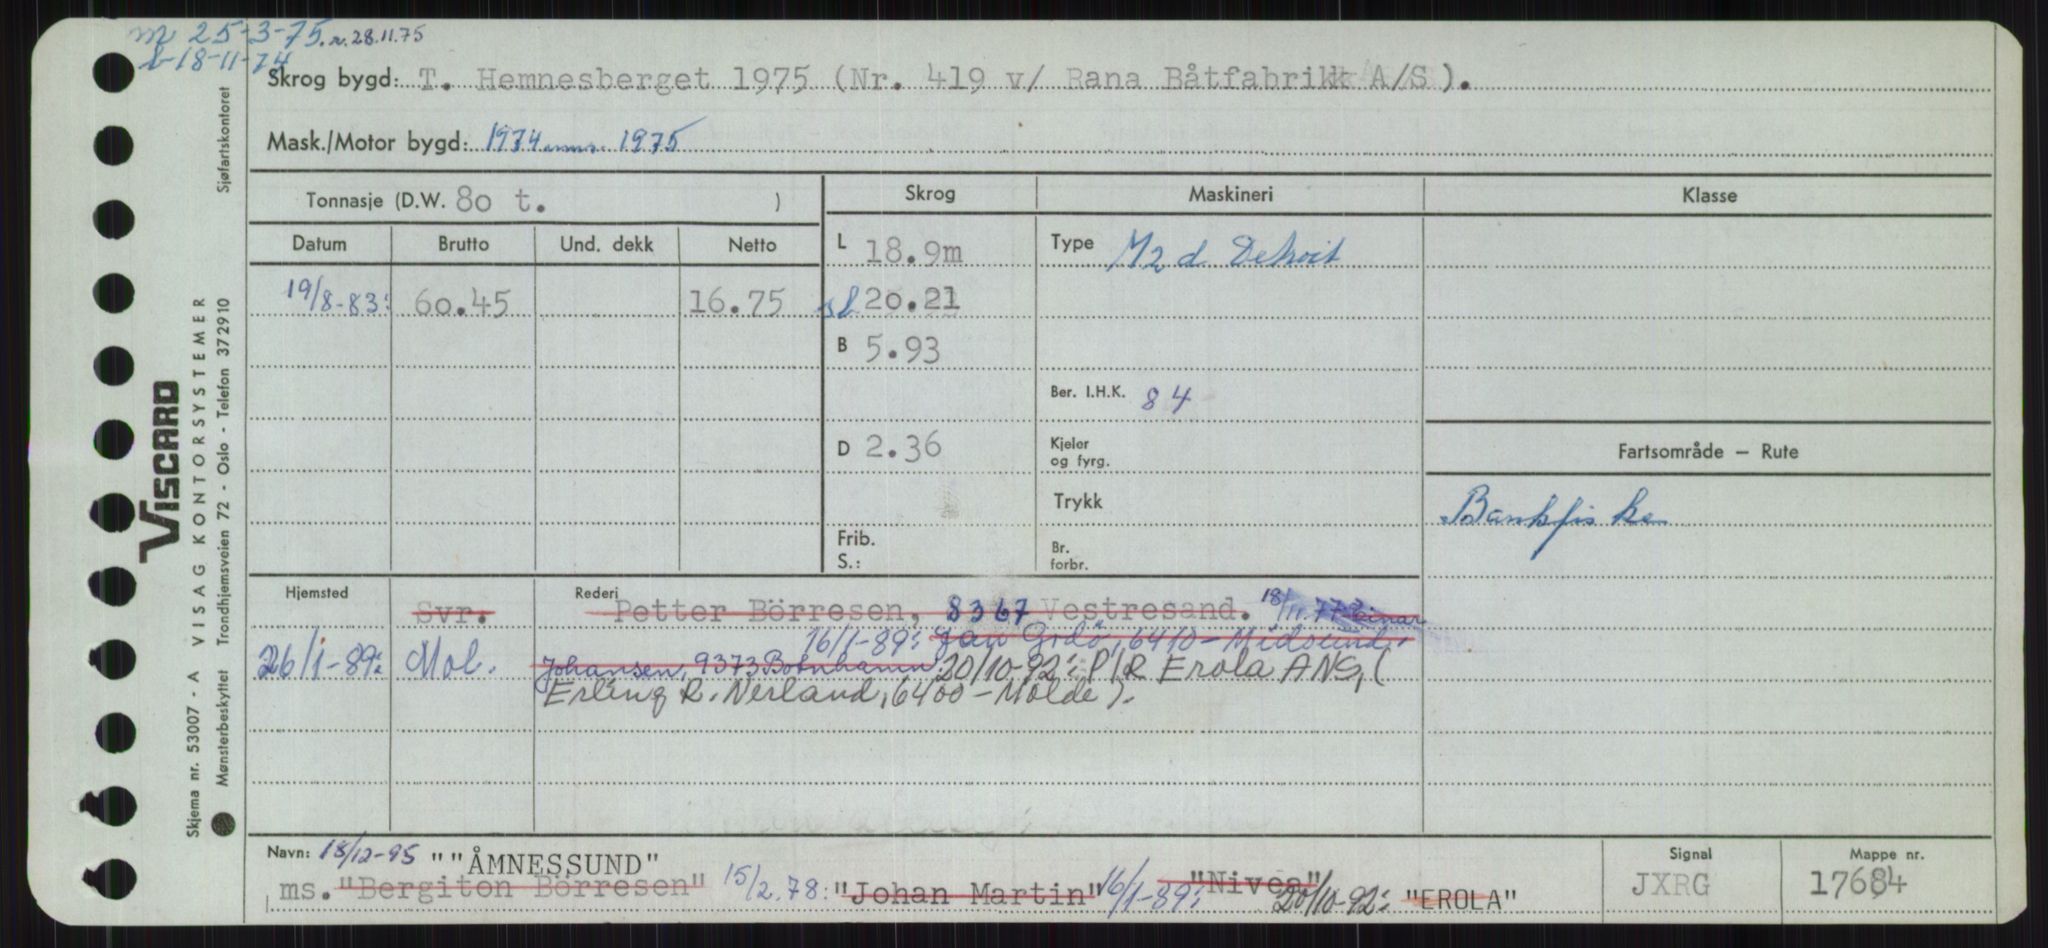 m 25-3-75. r. 28.11.75
b-18-11-74
Skrog bygd: T. Hemnesberget 1975 (Nr. 419 v/ Rana Båtfabrikk A/S).
Mask./Motor bygd: 1974 mm. 1975
Tonnasje (D.W. 80 t. )
Skrog
Maskineri
Klasse
Datum Brutto Und. dekk Netto
L 18.9m
Type M2d Detroit
19/8-83: 60.45 16.75
sl 20.21
B 5.93
Ber. I.H.K. 84
D 2.36
Kjeler og fyrg.
Fartsområde — Rute
Trykk
Bankfiske
Frib.
S.:
Br. forbr.
Hjemsted
Rederi
Svr. Petter Börresen, 8367 Vestresand. 18/11.77: Einar
16/1-89: Jan Gidö, 6410-Midsund.
26/1-89: Mol. Johansen, 9373 Botnhamn. 20/10-92: P/R Erola ANS, (
Erling R. Nerland, 6400-Molde).
Navn: 18/12-95 ""ÅMNESSUND"
ms. "Bergiton Börresen" 15/2.78: "Johan Martin" 16/1-89: "Nivea" 20/10-92: "EROLA"
Signal
JXRG
Mappe nr.
17684
VISCARD
VISAG KONTORSYSTEMER
Sjøfartskontoret
Trondhjemsveien 72 - Oslo - Telefon 372910
Skjema nr. 53007 - A
Mønsterbeskyttet